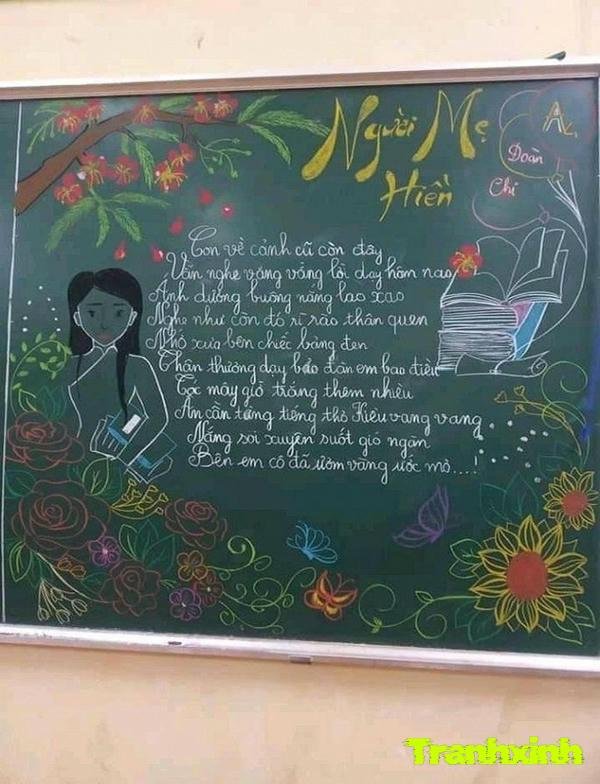 Người Mẹ
Hiền
A
Đoàn
Chi
Con về cảnh cũ còn đây
Vẫn nghe văng vẳng lời dạy hôm nao
Ánh dương buông nắng lao xao
Nghe như còn đó rì rào thân quen
Nhớ xưa bên chiếc bảng đen
Thân thương dạy bảo đàn em bao điều
Tóc mây giờ trắng thêm nhiều
Ân cần từng tiếng thơ Kiều vang vang
Nắng soi xuyên suốt gió ngàn
Bên em cô đã ươm vàng ước mơ...!
Tranhxinh